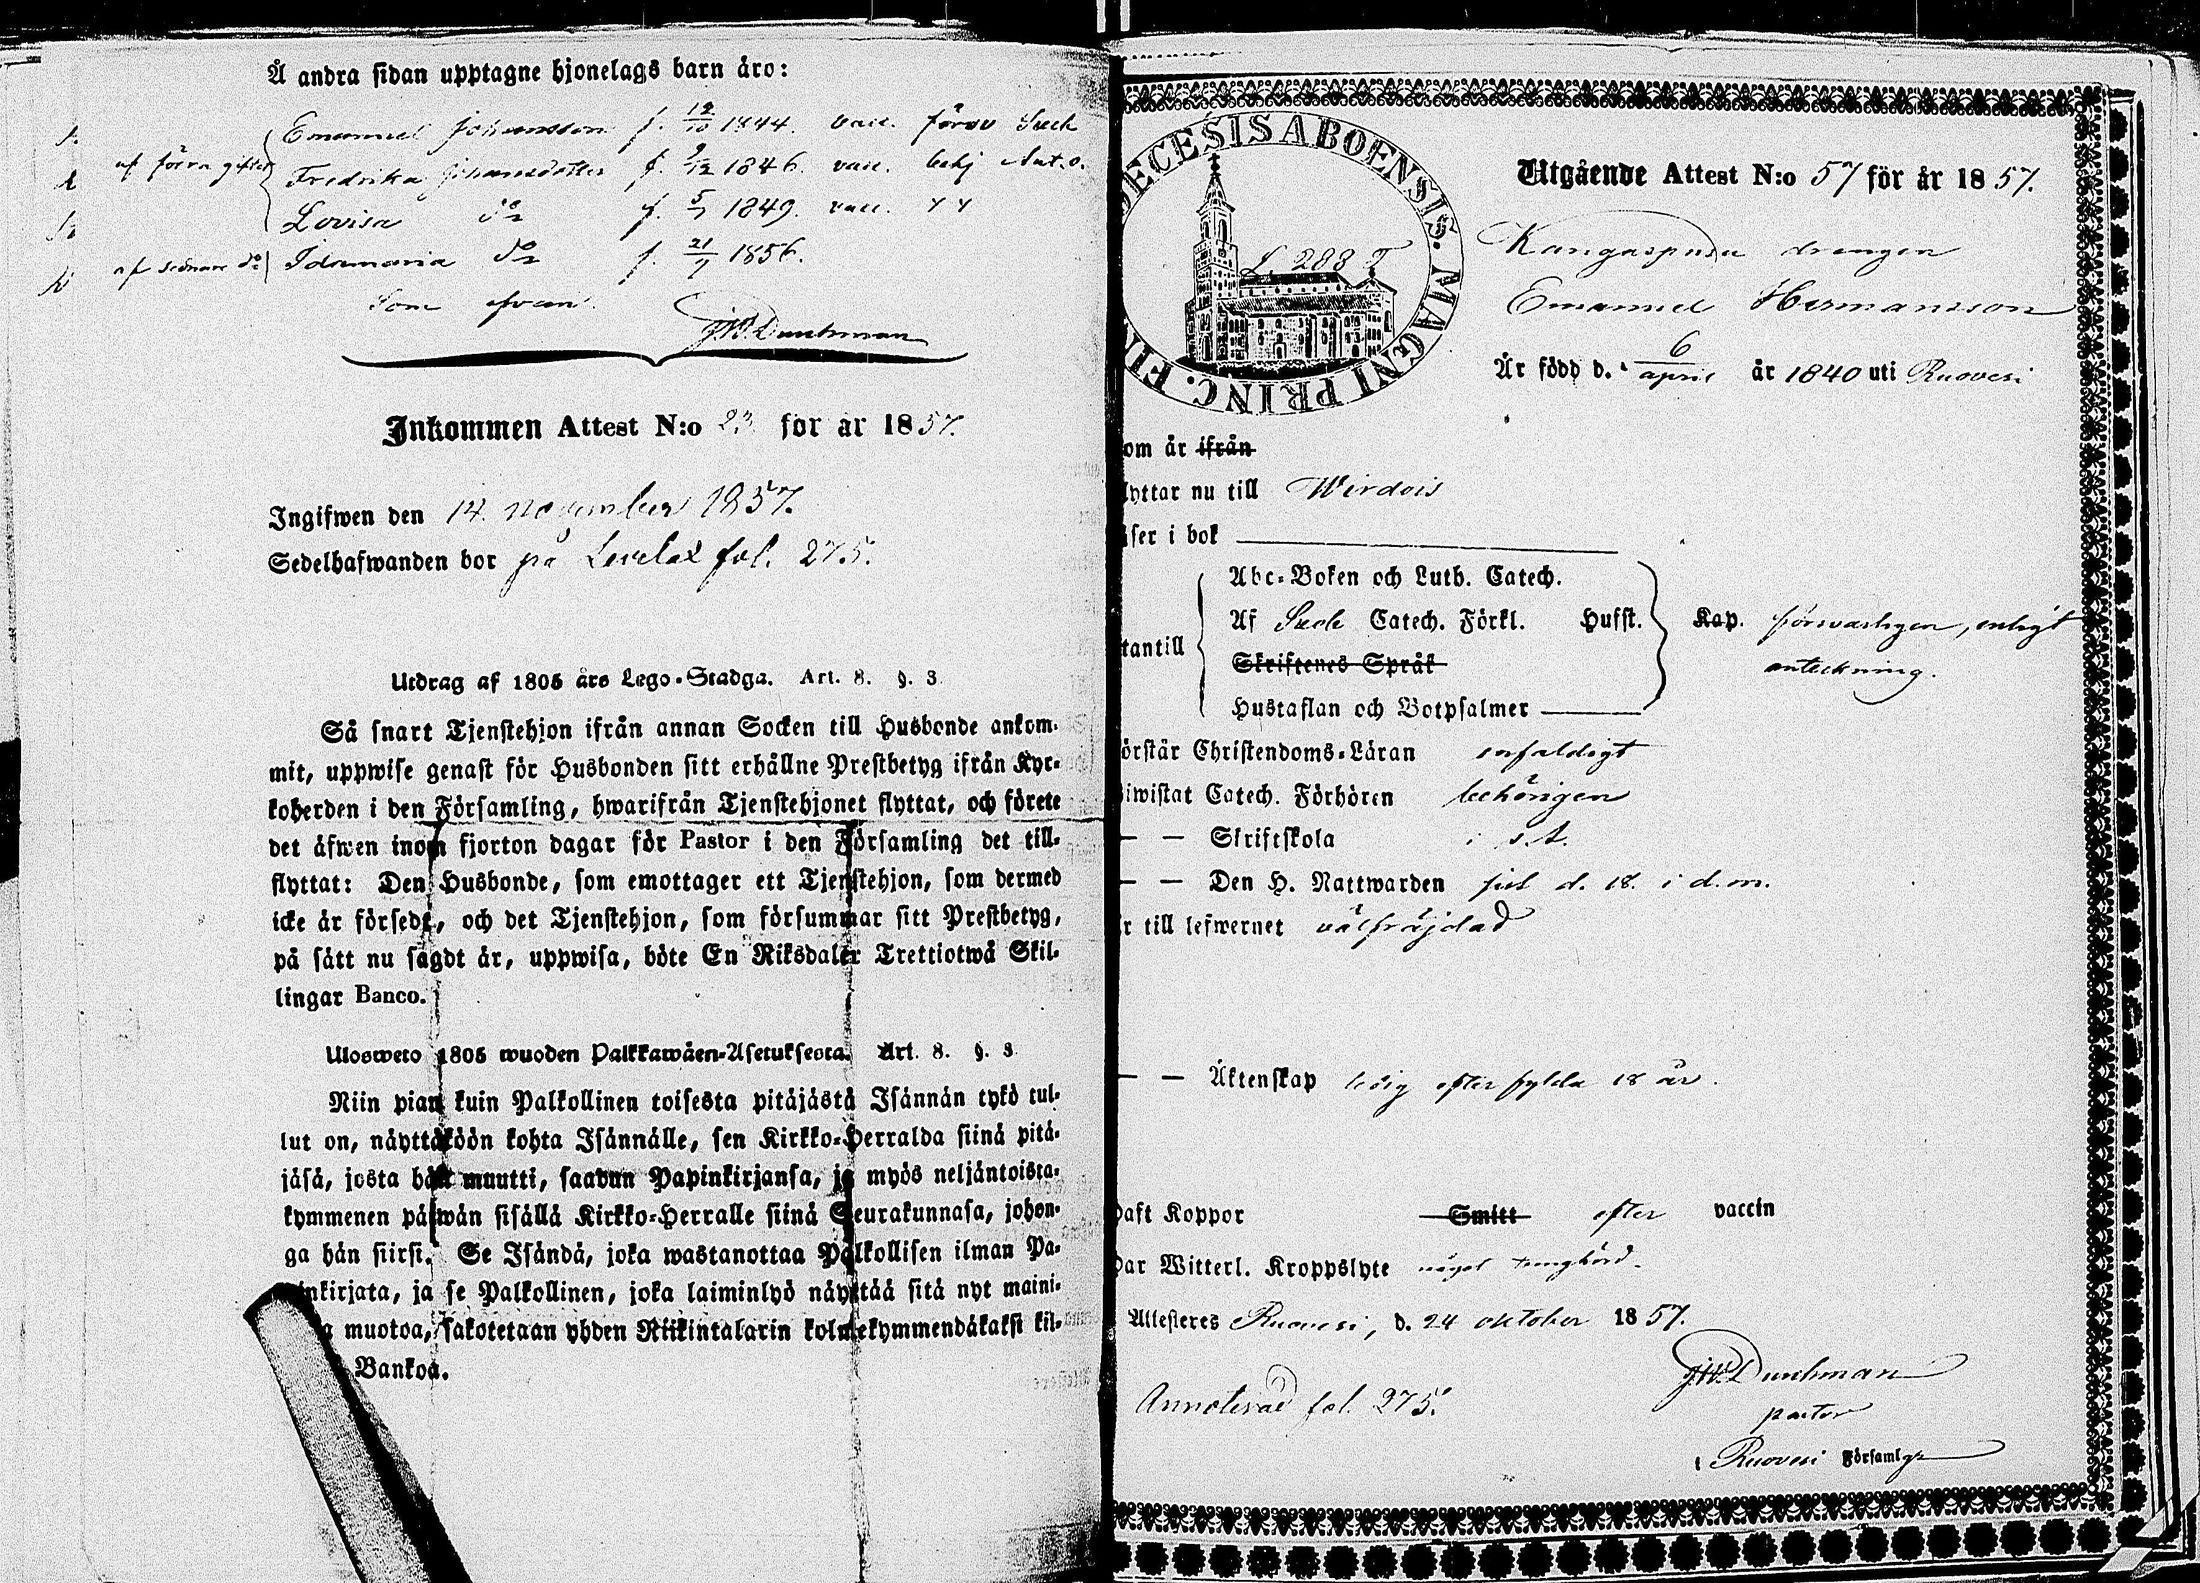 Å andra sidan upptagne hjonelags barn äro:
Emanuel Johansson f. 12/10 1844. vacc. försv Suck
af förra giftet Fredrika Johansdotter f. 9/12 1846. vacc. behj Aut. o.
Lovisa do f. 5/7 1849. vacc. Y Y
af sednare do Idamaria do f. 21/7 1856.
Som ofvan.
Inkommen Attest N:o 23. för år 1857.
Ingifwen den 14. november 1857.
Sedelhafwanden bor på fol. 275.
Utdrag af 1805 års Lego-Stadga. Art. 8. §. 3.
Så snart Tjenstehjon ifrån annan Socken till Husbonde ankom-
mit, uppwise genast för Husbonden sitt erhållne Prestbetyg ifrån Kyr-
koherden i den Församling, hwarifrån Tjenstehjonet flyttat, och förete
det äfwen inom fjorton dagar för Pastor i den Församling det till-
flyttat: Den Husbonde, som emottager ett Tjenstehjon, som dermed
icke är försedt, och det Tjenstehjon, som försummar sitt Prestbetyg,
på sätt nu sagdt är, uppwisa, böte En Riksdaler Trettiotwå Skil-
lingar Banco.
Ulosweto 1805 wuoden Palkkawäen-Asetuksesta. Art. 8. §. 3.
Niin pian kuin Palkollinen toisesta pitäjästä Isännän tykö tul-
lut on, näyttäköön kohta Isännälle, sen Kirkko-Herralda siinä pitä-
jäsä, josta hän muutti, saadun Papinkirjansa, ja myös neljäntoista-
kymmenen päiwän sisällä Kirkko-Herralle siinä Seurakunnasa, johon-
ga hän siirsi. Se Isändä, joka wastanottaa Palkollisen ilman Pa-
pinkirjata, ja se Palkollinen, joka laiminlyö näyttää sitä nyt maini-
muotoa, sakotetaan yhden Riikintalarin kolmekymmendäkaksi kil-
Bankoa.
DECESIS ABOENSIS. MAGNI PRINC. FIN
f. 288
Utgående Attest N:o 57 för år 1857.
drengen
Emanuel Hermansson
Är född d. 6 april år 1840 uti Ruovesi
om är ifrån
lyttar nu till Wirdois
äser i bok
Abc-Boken och Luth. Catech.
Af Sueb Catech. Förkl. Husst. Kap. försvarligen, enligt
tantill
Skriftenes Språk anteckning.
Hustaflan och Botpsalmer
örstår Christendoms-Läran enfaldigt
iwistat Catech. Förhören behörigen
— — Skriftskola i s. A.
— — Den H. Nattwarden sist d. 18. i d. m.
r till lefwernet välfräjdad
— — Äktenskap ledig efter fylda 18 år.
haft Koppor Smitt efter vaccin
har Witterl. Kroppslyte något tunghörd.
Attesteres Ruovesi, d. 24 oktober 1857.
Annoterad fol. 275.
pastor
i Ruovesi Församlg